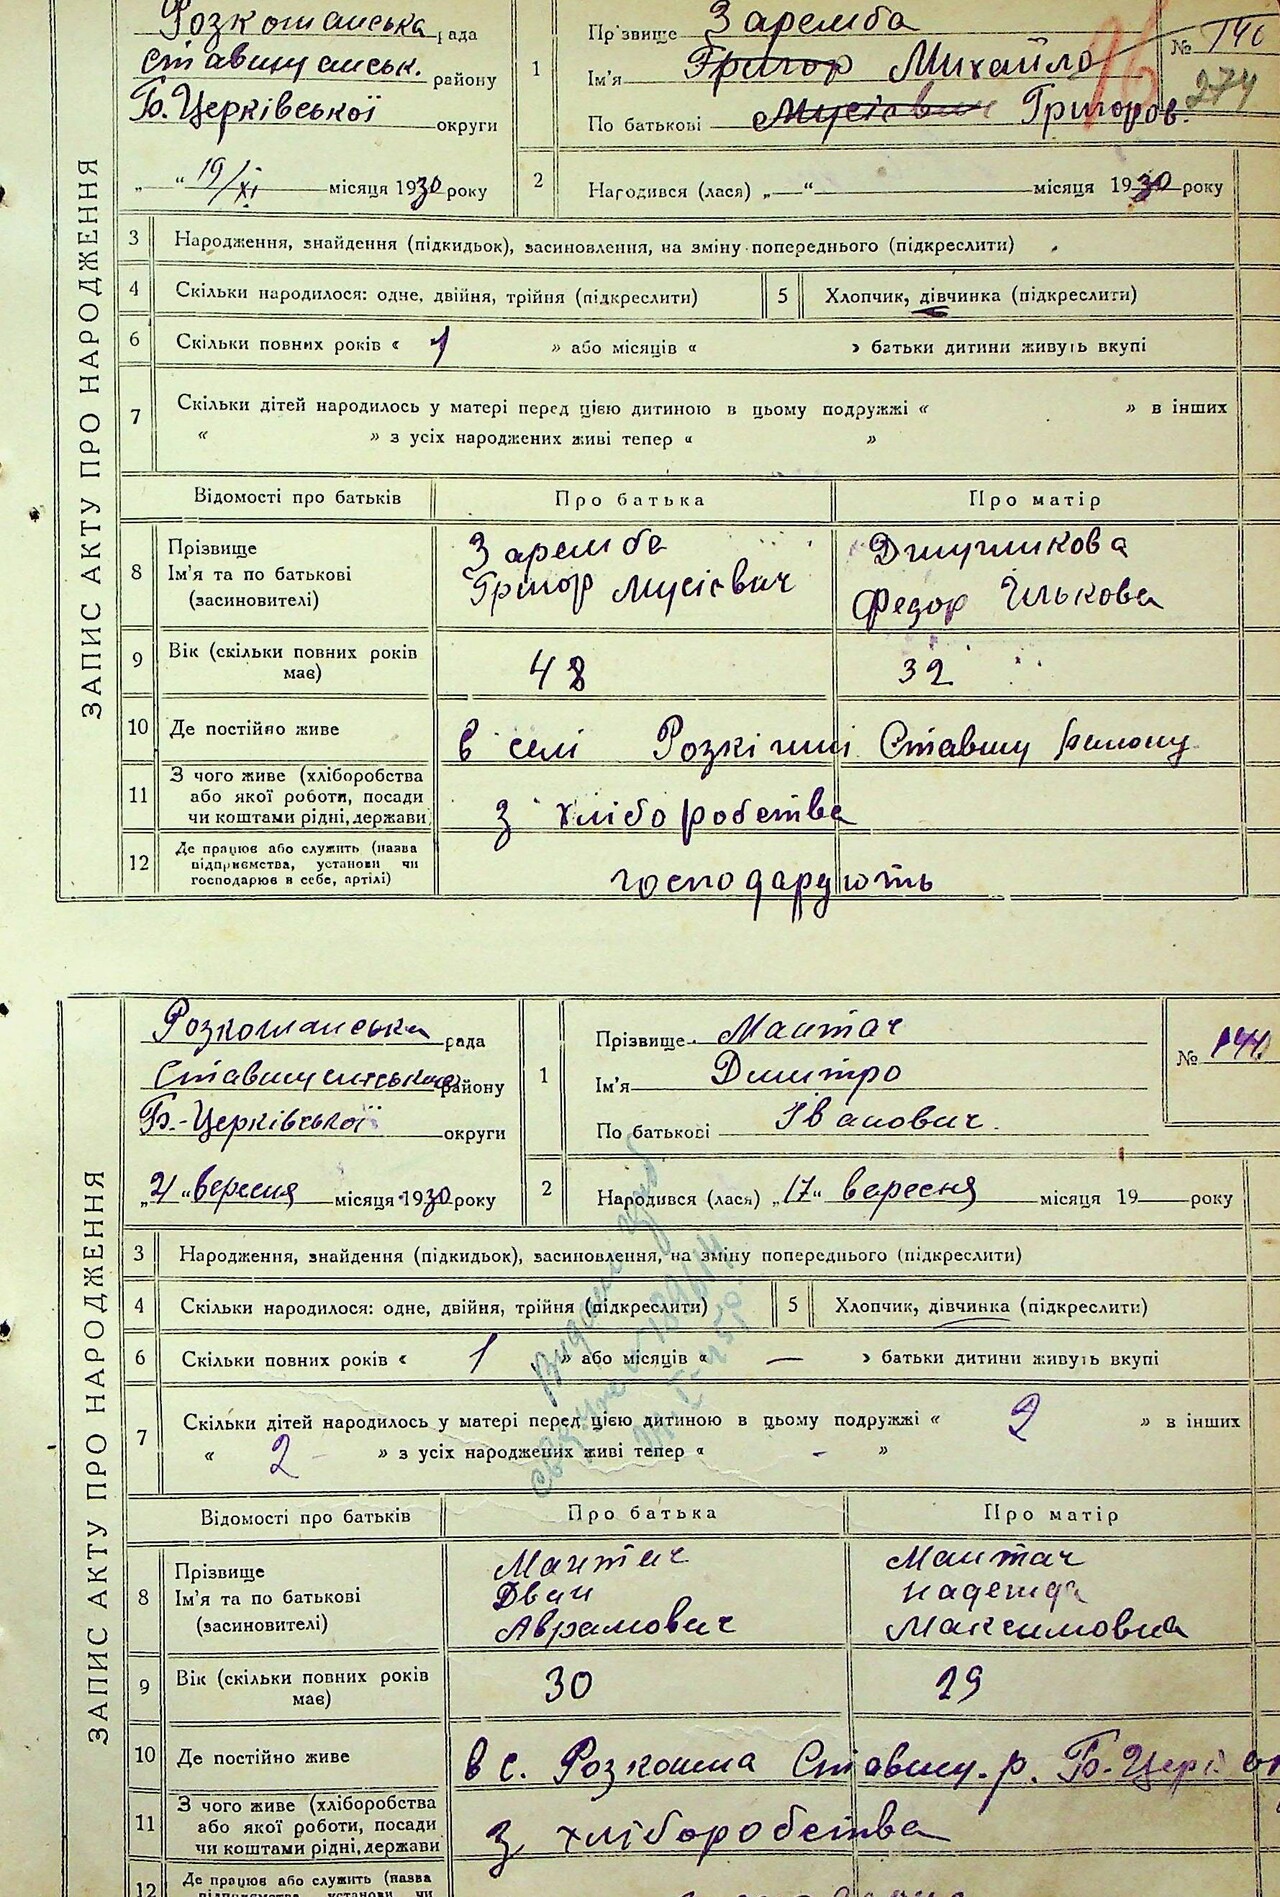 ЗАПИС АКТУ ПРО НАРОДЖЕННЯ
Розкошанська рада
Ставищанськ. району
Б. Церківської округи
„ “ 19/XI місяця 1930 року
1
Прізвище Заремба
Ім'я Григор Михайло
По батькові Мусієвич Григоров.
№ 140
96
274
2 Народився (лася) „ “ місяця 1930 року
3 Народження, знайдення (підкидьок), засиновлення, на зміну попереднього (підкреслити)
4 Скільки народилося: одне, двійня, трійня (підкреслити) 5 Хлопчик, дівчинка (підкреслити)
6 Скільки повних років « 1 » або місяців « » батьки дитини живуть вкупі
7 Скільки дітей народилось у матері перед цією дитиною в цьому подружжі « » в інших
« » з усіх народжених живі тепер « »
Відомості про батьків Про батька Про матір
8 Прізвище
Ім'я та по батькові
(засиновителі)
Заремба
Григор Мусієвич
Федор Ількова
9 Вік (скільки повних років
має)
48 32
10 Де постійно живе в селі Розкішні Ставищ району
11 З чого живе (хліборобства
або якої роботи, посади
чи коштами рідні, держави
з хліборобства
12 Де працює або служить (назва
підприємства, установи чи
господарює в себе, артілі)
господарують
ЗАПИС АКТУ ПРО НАРОДЖЕННЯ
Розкошанська рада
району
Б.-Церківської округи
„21“ вересня місяця 1930 року
1
Прізвище Мантач
Ім'я Дмитро
По батькові Іванович.
№ 144
2 Народився (лася) „17“ вересня місяця 19 року
3 Народження, знайдення (підкидьок), засиновлення, на зміну попереднього (підкреслити)
4 Скільки народилося: одне, двійня, трійня (підкреслити) 5 Хлопчик, дівчинка (підкреслити)
6 Скільки повних років « 1 » або місяців « — » батьки дитини живуть вкупі
7 Скільки дітей народилось у матері перед цією дитиною в цьому подружжі « 2 » в інших
« 2 - » з усіх народжених живі тепер « - »
Відомості про батьків Про батька Про матір
8 Прізвище
Ім'я та по батькові
(засиновителі)
Мантач
Іван
Аврамович
Мантач
Надежда
Максимовна
9 Вік (скільки повних років
має)
30 29
10 Де постійно живе в с. Розкошна Ставищ. р. Б-Церк
11 З чого живе (хліборобства
або якої роботи, посади
чи коштами рідні, держави
з хліборобства
12 Де працює або служить (назва
підприємства, установи чи